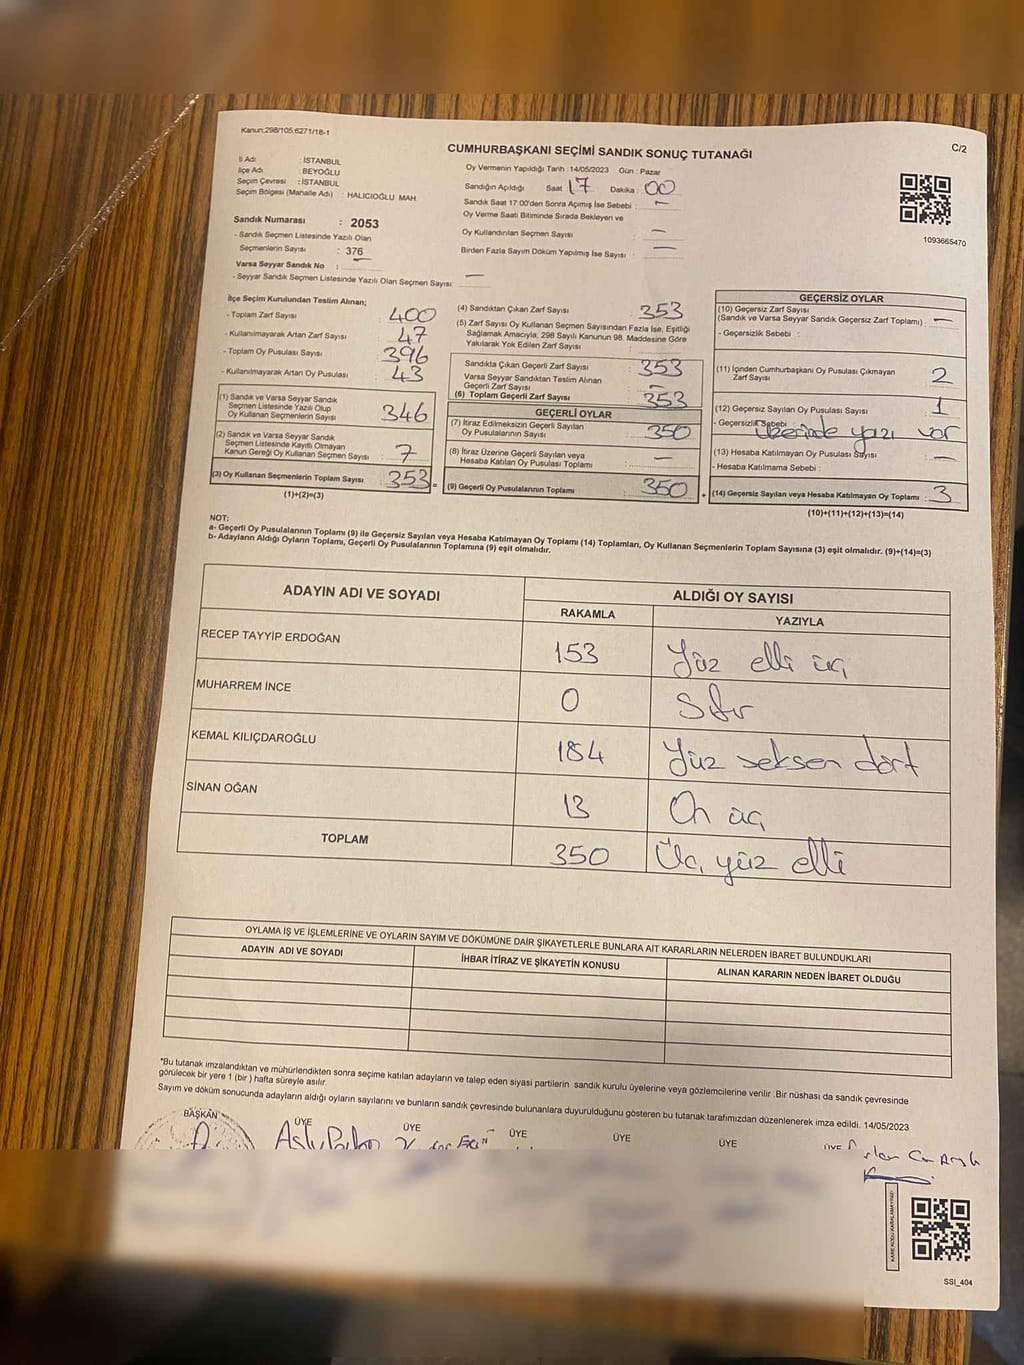 Kanun:298/105,6271/18-1
CUMHURBAŞKANI SEÇİMİ SANDIK SONUÇ TUTANAĞI
C/2
İl Adı : İSTANBUL
İlçe Adı : BEYOĞLU
Seçim Çevresi : İSTANBUL
Seçim Bölgesi (Mahalle Adı) : HALICIOĞLU MAH.
Oy Vermenin Yapıldığı Tarih :14/05/2023 Gün : Pazar
Sandığın Açıldığı Saat 17 Dakika : 00
Sandık Saat 17:00'den Sonra Açılmış İse Sebebi : —
Oy Verme Saati Bitiminde Sırada Bekleyen ve
Oy Kullandırılan Seçmen Sayısı : —
Birden Fazla Sayım Döküm Yapılmış İse Sayısı : —
1093665470
Sandık Numarası : 2053
- Sandık Seçmen Listesinde Yazılı Olan
Seçmenlerin Sayısı : 376
Varsa Seyyar Sandık No : —
- Seyyar Sandık Seçmen Listesinde Yazılı Olan Seçmen Sayısı: —
İlçe Seçim Kurulundan Teslim Alınan;
- Toplam Zarf Sayısı : 400
- Kullanılmayarak Artan Zarf Sayısı : 47
- Toplam Oy Pusulası Sayısı : 396
- Kullanılmayarak Artan Oy Pusulası : 43
(1) Sandık ve Varsa Seyyar Sandık
Seçmen Listesinde Yazılı Olup
Oy Kullanan Seçmenlerin Sayısı : 346
(2) Sandık ve Varsa Seyyar Sandık
Seçmen Listesinde Kayıtlı Olmayan
Kanun Gereği Oy Kullanan Seçmen Sayısı : 7
(3) Oy Kullanan Seçmenlerin Toplam Sayısı : 353 =
(1)+(2)=(3)
(4) Sandıktan Çıkan Zarf Sayısı : 353
(5) Zarf Sayısı Oy Kullanan Seçmen Sayısından Fazla İse, Eşitliği
Sağlamak Amacıyla; 298 Sayılı Kanunun 98. Maddesine Göre
Yakılarak Yok Edilen Zarf Sayısı :
Sandıkta Çıkan Geçerli Zarf Sayısı : 353
Varsa Seyyar Sandıktan Teslim Alınan
Geçerli Zarf Sayısı : —
(6) Toplam Geçerli Zarf Sayısı : 353
GEÇERLİ OYLAR
(7) İtiraz Edilmeksizin Geçerli Sayılan
Oy Pusulalarının Sayısı : 350
(8) İtiraz Üzerine Geçerli Sayılan veya
Hesaba Katılan Oy Pusulası Toplamı : —
(9) Geçerli Oy Pusulalarının Toplamı : 350 +
GEÇERSİZ OYLAR
(10) Geçersiz Zarf Sayısı
(Sandık ve Varsa Seyyar Sandık Geçersiz Zarf Toplamı) : —
- Geçersizlik Sebebi :
(11) İçinden Cumhurbaşkanı Oy Pusulası Çıkmayan
Zarf Sayısı : 2
(12) Geçersiz Sayılan Oy Pusulası Sayısı : 1
- Geçersizlik Sebebi : üzerinde yazı var
(13) Hesaba Katılmayan Oy Pusulası Sayısı : —
- Hesaba Katılmama Sebebi :
(14) Geçersiz Sayılan veya Hesaba Katılmayan Oy Toplamı : 3
(10)+(11)+(12)+(13)=(14)
NOT:
a- Geçerli Oy Pusulalarının Toplamı (9) ile Geçersiz Sayılan veya Hesaba Katılmayan Oy Toplamı (14) Toplamları, Oy Kullanan Seçmenlerin Toplam Sayısına (3) eşit olmalıdır. (9)+(14)=(3)
b- Adayların Aldığı Oyların Toplamı, Geçerli Oy Pusulalarının Toplamına (9) eşit olmalıdır.
ADAYIN ADI VE SOYADI
ALDIĞI OY SAYISI
RAKAMLA YAZIYLA
RECEP TAYYİP ERDOĞAN 153 Yüz elli üç
MUHARREM İNCE 0 Sıfır
KEMAL KILIÇDAROĞLU 184 Yüz seksen dört
SİNAN OĞAN 13 On üç
TOPLAM 350 Üç yüz elli
OYLAMA İŞ VE İŞLEMLERİNE VE OYLARIN SAYIM VE DÖKÜMÜNE DAİR ŞİKAYETLERLE BUNLARA AİT KARARLARIN NELERDEN İBARET BULUNDUKLARI
ADAYIN ADI VE SOYADI İHBAR İTİRAZ VE ŞİKAYETİN KONUSU ALINAN KARARIN NEDEN İBARET OLDUĞU
*Bu tutanak imzalandıktan ve mühürlendikten sonra seçime katılan adayların ve talep eden siyasi partilerin sandık kurulu üyelerine veya gözlemcilerine verilir .Bir nüshası da sandık çevresinde
görülecek bir yere 1 (bir ) hafta süreyle asılır.
Sayım ve döküm sonucunda adayların aldığı oyların sayılarını ve bunların sandık çevresinde bulunanlara duyurulduğunu gösteren bu tutanak tarafımızdan düzenlenerek imza edildi. 14/05/2023
BAŞKAN ÜYE ÜYE ÜYE ÜYE ÜYE ÜYE
KARE KODU KARALAMAYINIZ!
SSI_404